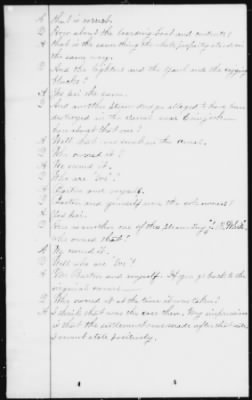 A That is correct.
Q How about the boarding boat and outfits?
A That is the same thing the whole property stand on
the same way.
Q And the lighters and the yawl and the rigging
blocks?
A Yes sir the same.
Q And another steam dredge alleged to have been
destroyed in the
how about that one?
A Well that was
Q Who owned it?
A We owned it.
Q Who are "We"?
A and myself.
Q and yourself were the sole owners?
A Yes sir.
Q Here is another one of this steam tug
who owned that?
A We owned it.
Q Well who are "We"?
A and myself. If you go back to the
original owners
Q Who owned it at the time it was taken?
A I think that was the case then. My impression
is that the settlement was made after that but
I cannot state positively.